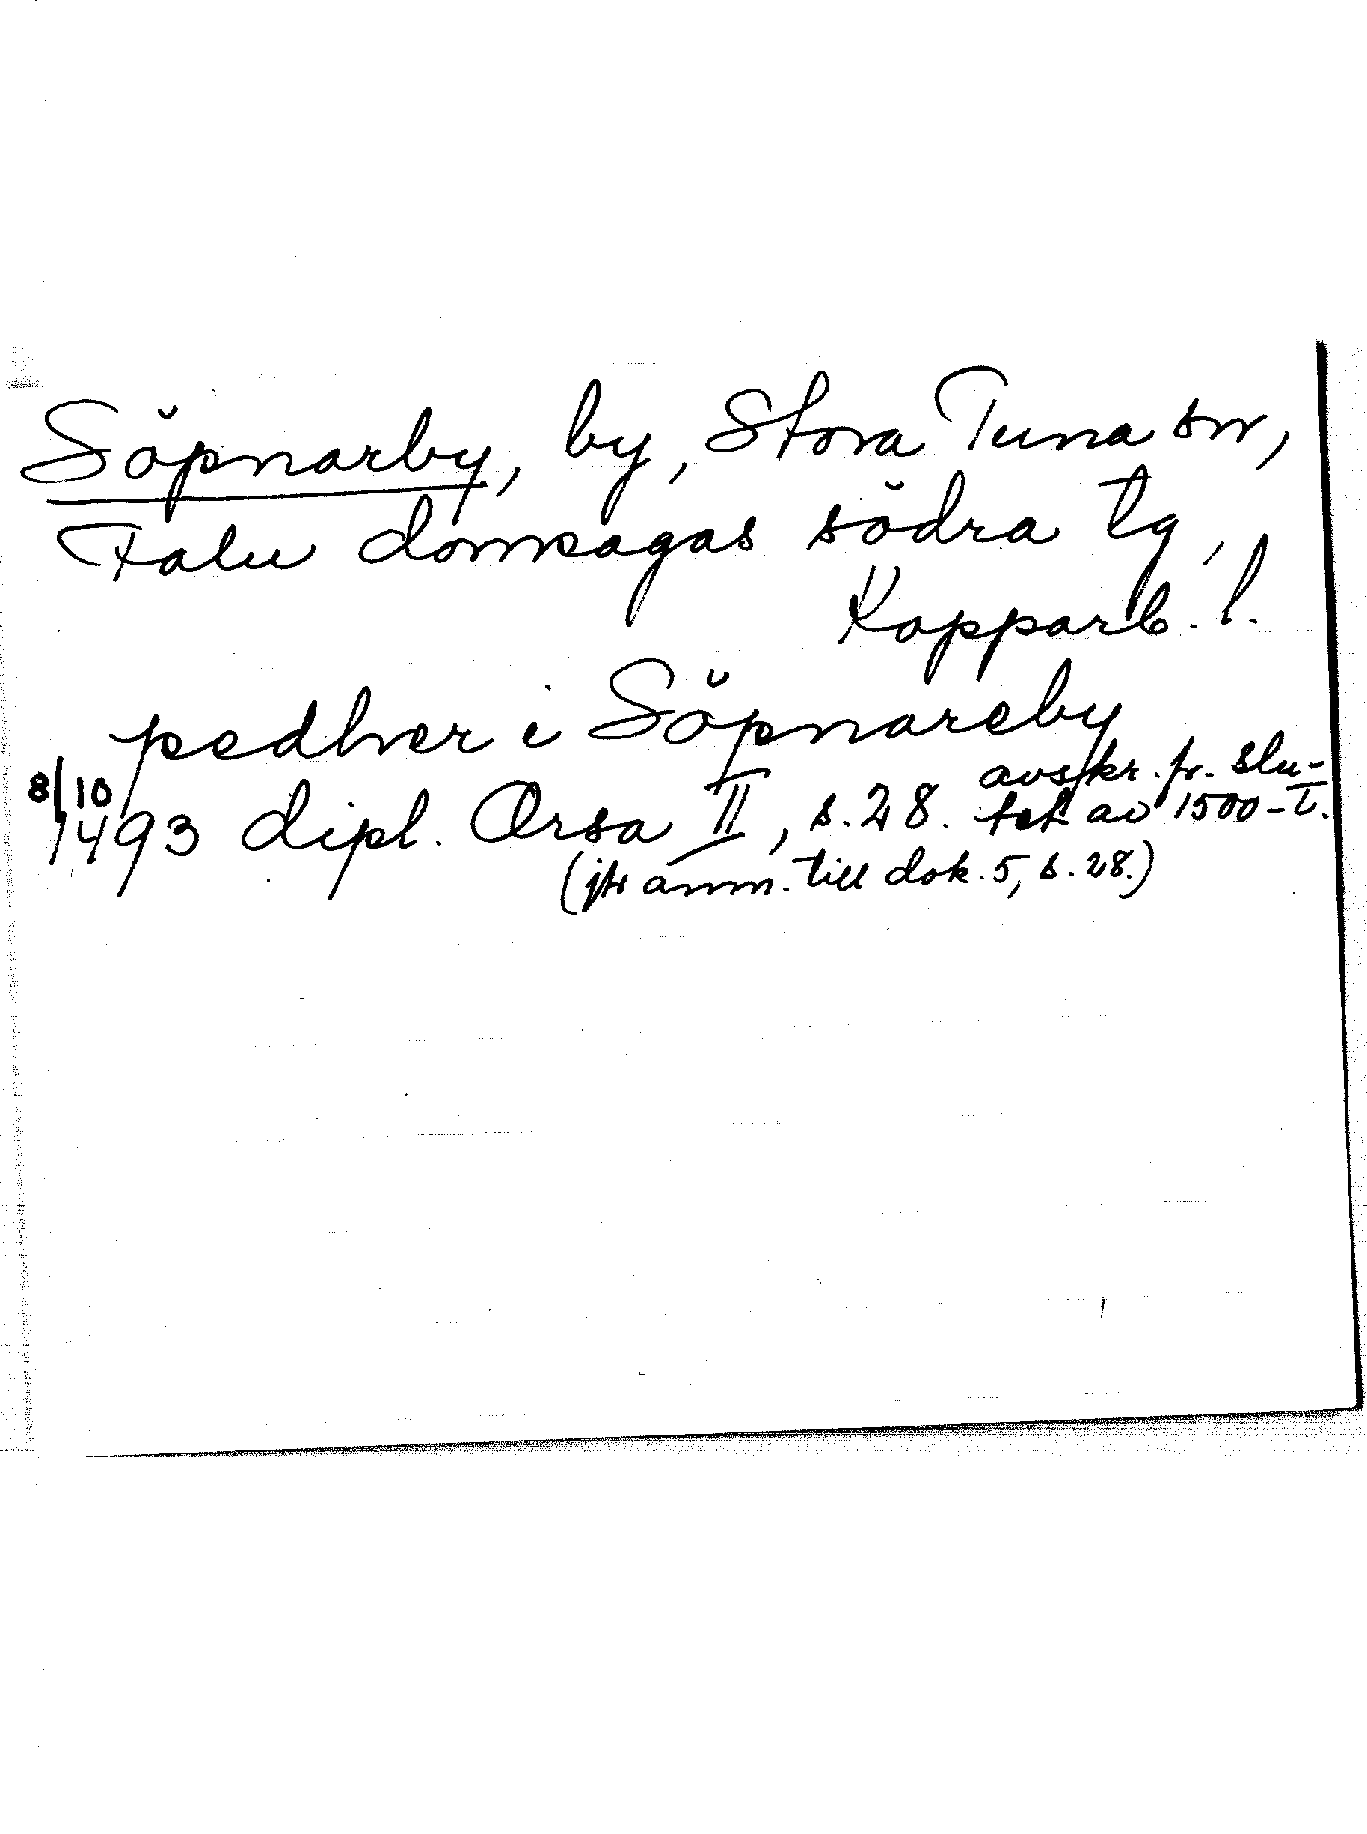 Söpnarby, by, Stora Tuna sn,
Falu domsagas södra tg,
Kopparb. l.
pedher i Söpnareby
8/10 1493 dipl. Orsa II, s. 28. avskr. fr. slu-
tet av 1500-t.
(jfr anm. till dok. 5, s. 28.)